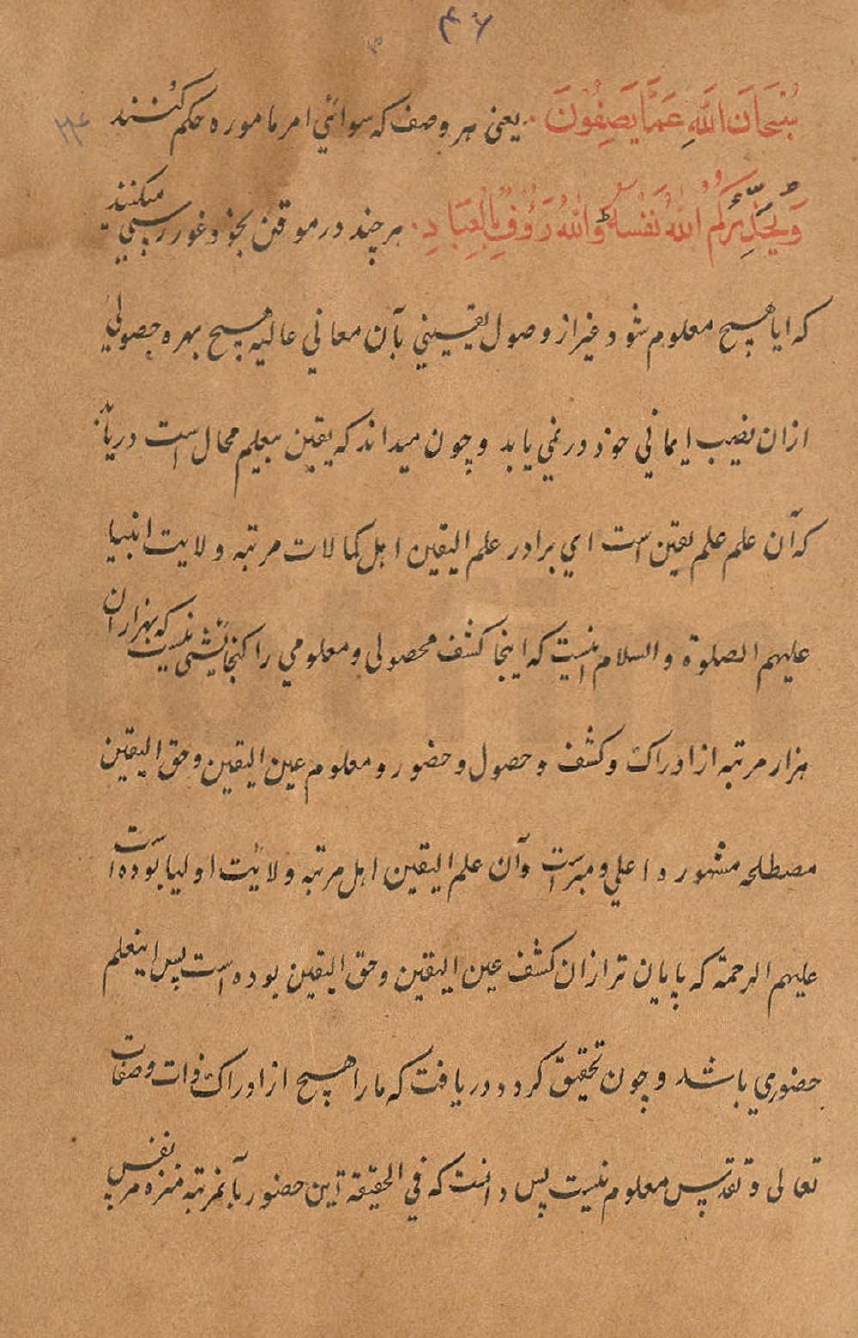 ۴۶
سُبْحَانَ اللَّهِ عَمَّا يَصِفُونَ. یعنی هر وصف که سوائي امر ماموره حکم کنند
وَيُحَذِّرُكُمُ اللَّهُ نَفْسَهُ وَاللَّهُ رَؤُوفٌ بِالْعِبَادِ. هر چند در موقن بخود غور رسی میکنند
که ایا هیچ معلوم شود غیر از وصول یقینی بآن معاني عالیه هیچ بهره حصولي
ازان نصیب ایماني خود در نمي یابد و چون میداند که یقین بیعلم محال است دریابد
که آن علم علم یقین است اي برادر علم الیقین اهل کمالات مرتبه ولایت انبیا
علیهم الصلوة والسلام اینست که اینجا کشف محصولی و معلومي را گنجایشی نیست که بهزاران
هزار مرتبه از ادراک و کشف و حصول و حضور و معلوم عین الیقین و حق الیقین
مصطلحه مشهوره اعلي و مبراست و آن علم الیقین اهل مرتبه ولایت اولیا بوده است
علیهم الرحمة که پایان تر ازان کشف عین الیقین و حق الیقین بوده است پس اینعلم
حضوري باشد و چون تحقیق کرد و دریافت که ما را هیچ از ادراک ذات و صفات
تعالی و تقدس معلوم نیست پس دانست که في الحقیقة این حضور بآنمرتبه منزه مر نفس